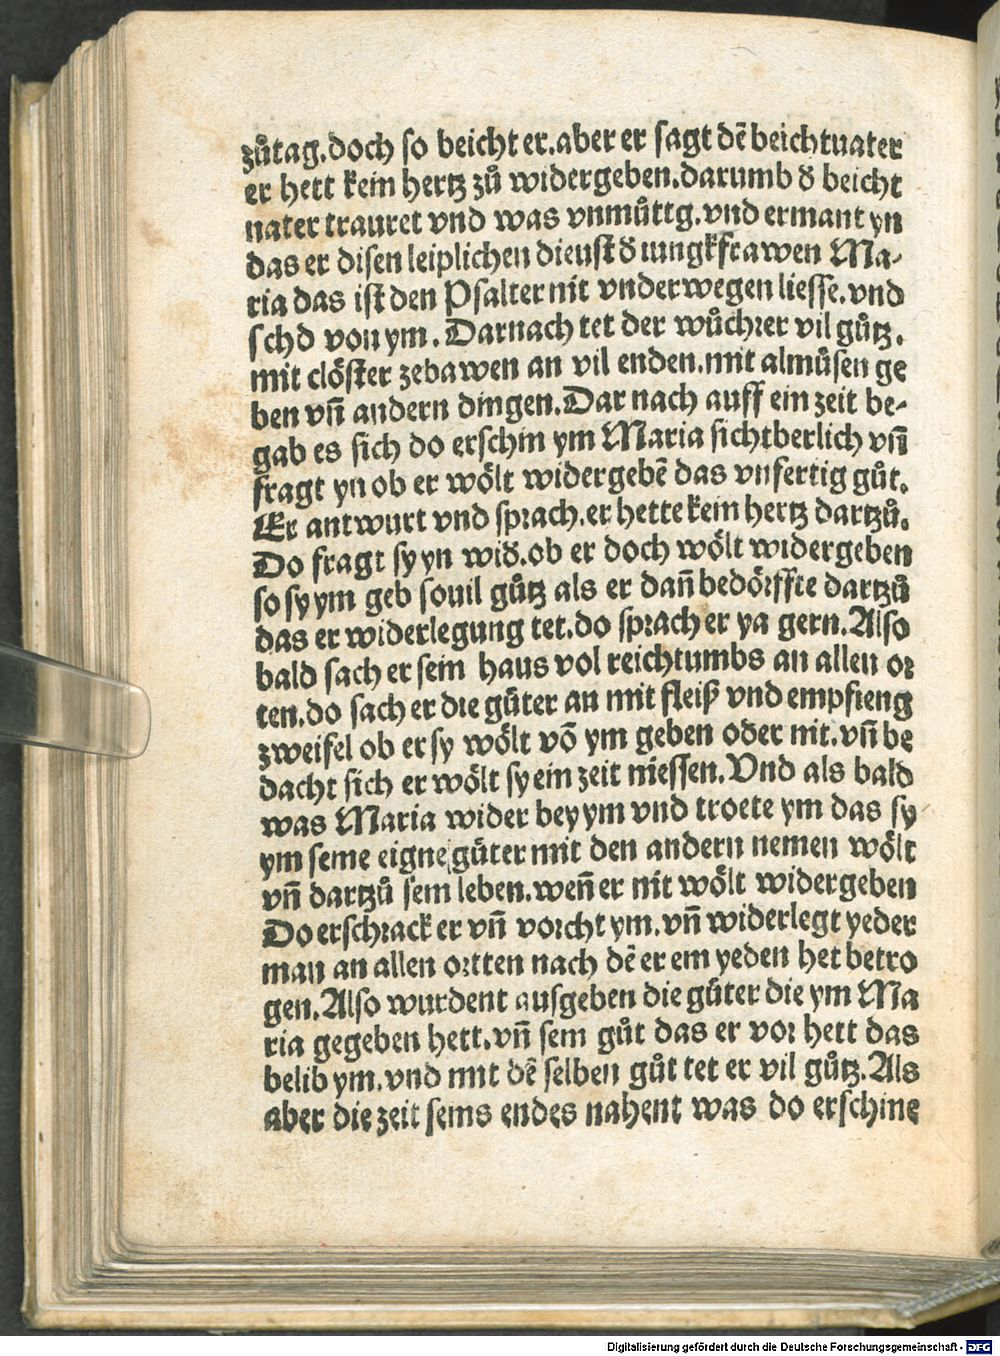 zůtag.doch so beicht er.aber er sagt dē beichtuater
er hett kein hertz zů widergeben.darumb d̕ beicht
uater trauret vnd was vnmůttg.vnd ermant yn
das er disen leiplichen dienst d̕ iungkfrawen Ma-
ria das ist den Psalter nit vnderwegen liesse.vnd
schd von ym. Darnach tet der wůchrer vil gůtz.
mit clöster zebawen an vil enden.mit almůsen ge
ben vn̄ andern dingen.Dar nach auff ein zeit be-
gab es sich do erschin ym Maria sichtberlich vn̄
fragt yn ob er wölt widergebē das vnfertig gůt.
Er antwurt vnd sprach.er hette kein hertz dartzů.
Do fragt sy yn wid̕.ob er doch wölt widergeben
so sy ym geb souil gůtz als er dan̄ bedörffte dartzů
das er widerlegung tet.do sprach er ya gern.Also
bald sach er sein haus vol reichtumbs an allen or
ten.do sach er die gůter an mit fleiß vnd empfieng
zweifel ob er sy wölt vō ym geben oder nit.vn̄ be
dacht sich er wölt sy ein zeit niessen.Vnd als bald
was Maria wider bey ym vnd troete ym das sy
ym seine eigne gůter mit den andern nemen wölt
vn̄ dartzů sein leben.wen̄ er nit wölt widergeben
Do erschrack er vn̄ vorcht ym.vn̄ widerlegt yeder
man an allen ortten nach dē er em yeden het betro
gen.Also wurdent ausgeben die gůter die ym Ma
ria gegeben hett.vn̄ sein gůt das er vor hett das
belib ym.vnd mit dē selben gůt tet er vil gůtz.Als
aber die zeit seins endes nahent was do erschine
Digitalisierung gefördert durch die Deutsche Forschungsgemeinschaft - DFG